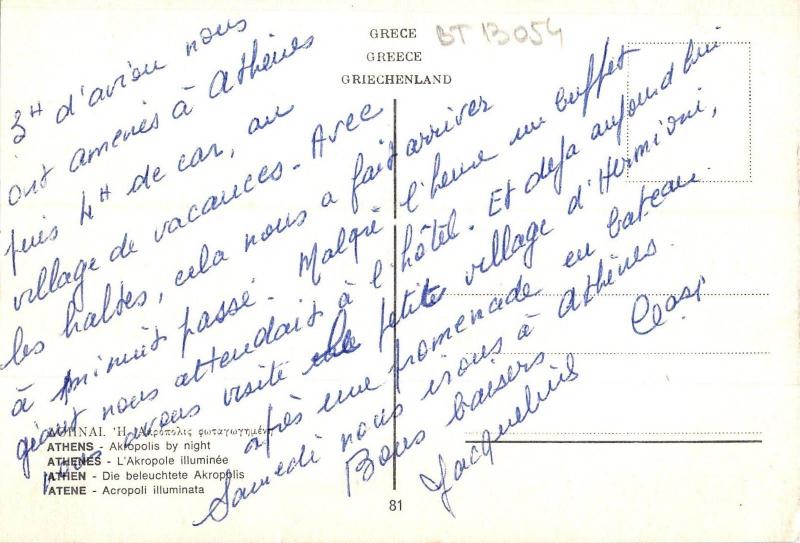 GRECE
GREECE
GRIECHENLAND
BT 13054
3H d'avion nous
ont amenés à Athènes
puis 4H de car, au
village de vacances. Avec
les haltes, cela nous a fait arriver
à minuit passé. Malgré l'heure un buffet
géant nous attendait à l'hôtel. Et deja aujourd'hui
nous avons visité le petite village d'Hermioni,
après une promenade en bateau.
Samedi nous irons à Athènes.
Bons baisers
Jacqueline
ΑΘΗΝΑΙ. Ἡ Ἀκρόπολις φωταγωγημένη
ATHENS - Akropolis by night
ATHENES - L'Akropole illuminée
ATHEN - Die beleuchtete Akropolis
ATENE - Acropoli illuminata
81